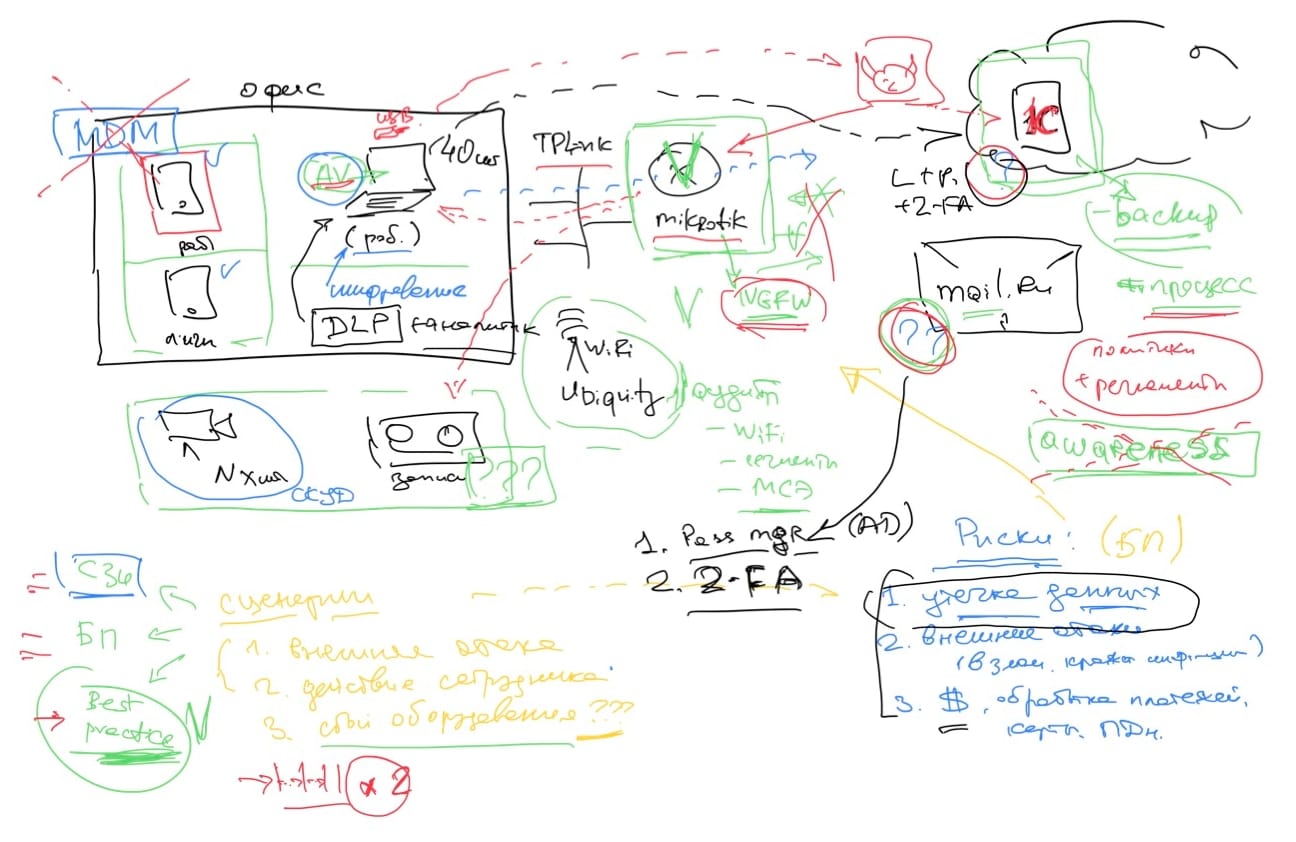 офис
MDM
USB
40шт
AV
раб
(раб.)
шифрование
личн
DLP
+аналитик
TPLink
mikrotik
NGFW
1C
L+P.
+2-FA
?
-backup
+процесс
mail.ru
??
политики
+регламенты
awareness
WiFi
Ubiquity
аудит
- WiFi
- сегменты
- МСЭ
Nхшт
СКУД
запись
???
1. Pass mgr
(AD)
2. 2-FA
Риски:
(БП)
1. утечка данных
2. внешние атаки
(взлом, кража информации)
3. $, обработка платежей,
карты. ПДн.
СЗИ
БП
Best
practice
сценарии
1. внешняя атака
2. действие сотрудника
3. сбои оборудования ???
x 2